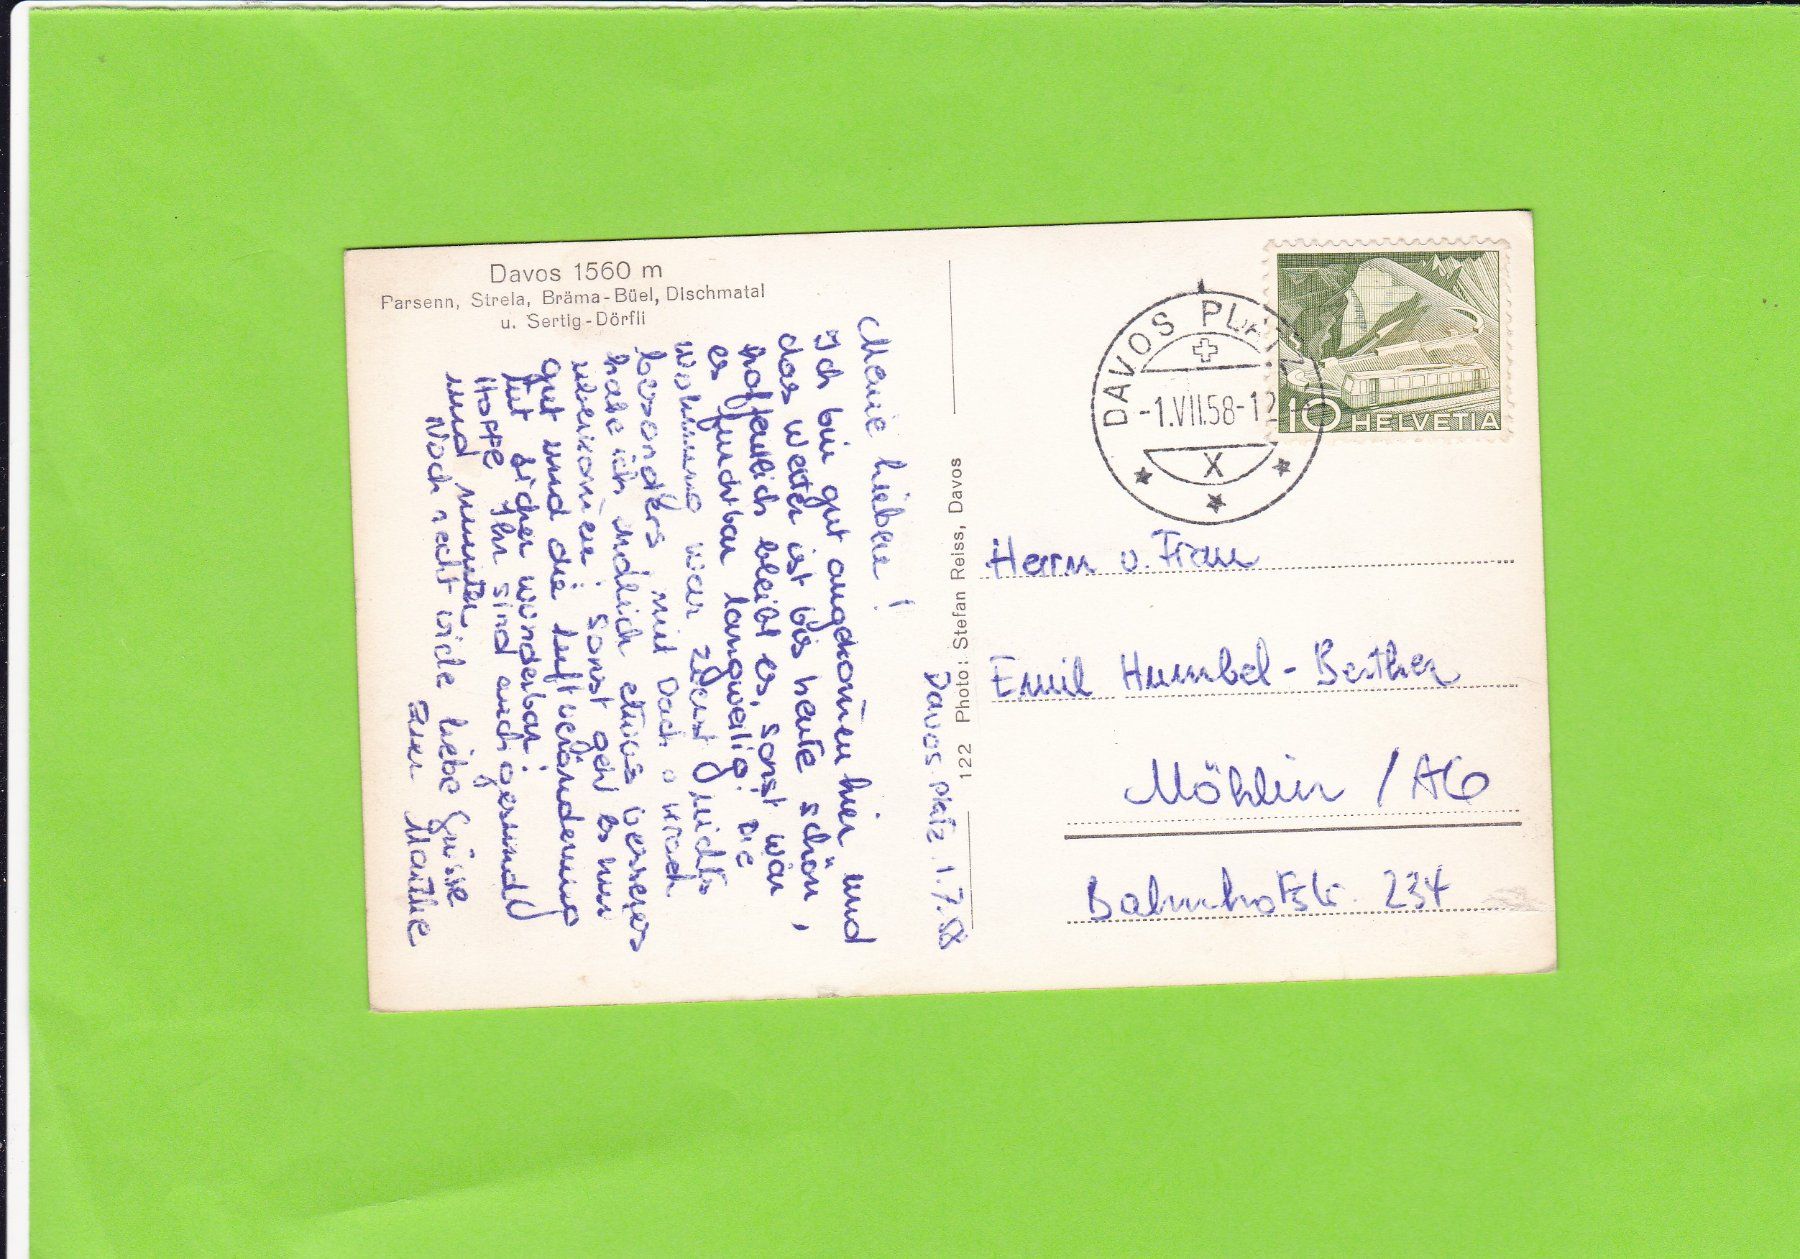 Davos 1560 m
Parsenn, Strela, Bräma-Büel, Dischmatal
u. Sertig-Dörfli
Davos-Platz 1.7.58
Meine lieben!
Ich bin gut angekom̄en hier und
das wetter ist bis heute schön,
hoffentlich bleibt es, sonst wär
es furchtbar langweilig; Die
wohnung war zuerst nichts
besonders mit Dach
habe ich endlich etwas besseres
sonst geht es mir
gut und die Luftveränderung
tut sicher wunderbar;
Hoffe Ihr sind auch gesund
und munter
Noch recht viele liebe Grüsse
Euer Marthe
122 Photo: Stefan Reiss, Davos
DAVOS PLATZ
-1.VII.58-12
X
10 HELVETIA
Herrn u. Frau
Emil Humbel-Berther
Möhlin / AG
Bahnhofstr. 234